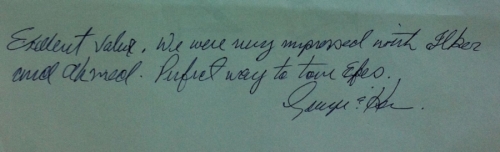 Excellent value. We were very impressed with Ilker
and Ahmed. Perfect way to tour Efes.
George &